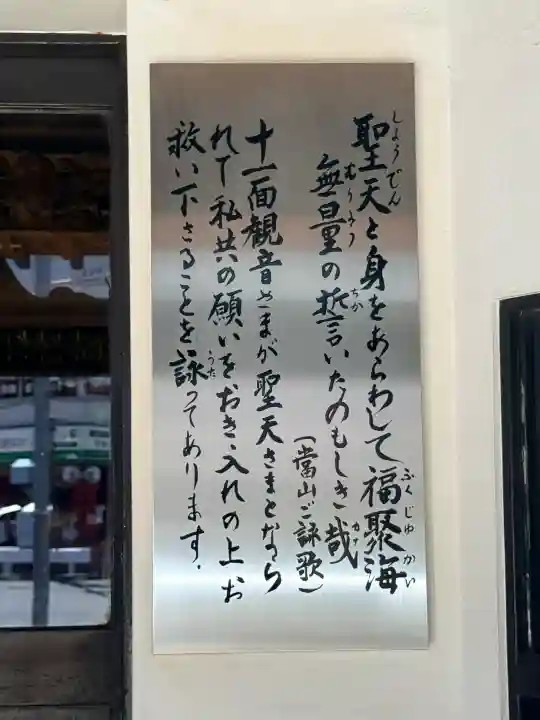 聖天と身をあらわして福聚海
しょうでん
ふくじゅかい
無量の誓いたのもしき哉
むりょう
ちか
かな
(當山ご詠歌)
十一面観音さまが聖天さまとなら
れて私共の願いをおきゝ入れの上お
救い下さることを詠ってあります.
うた